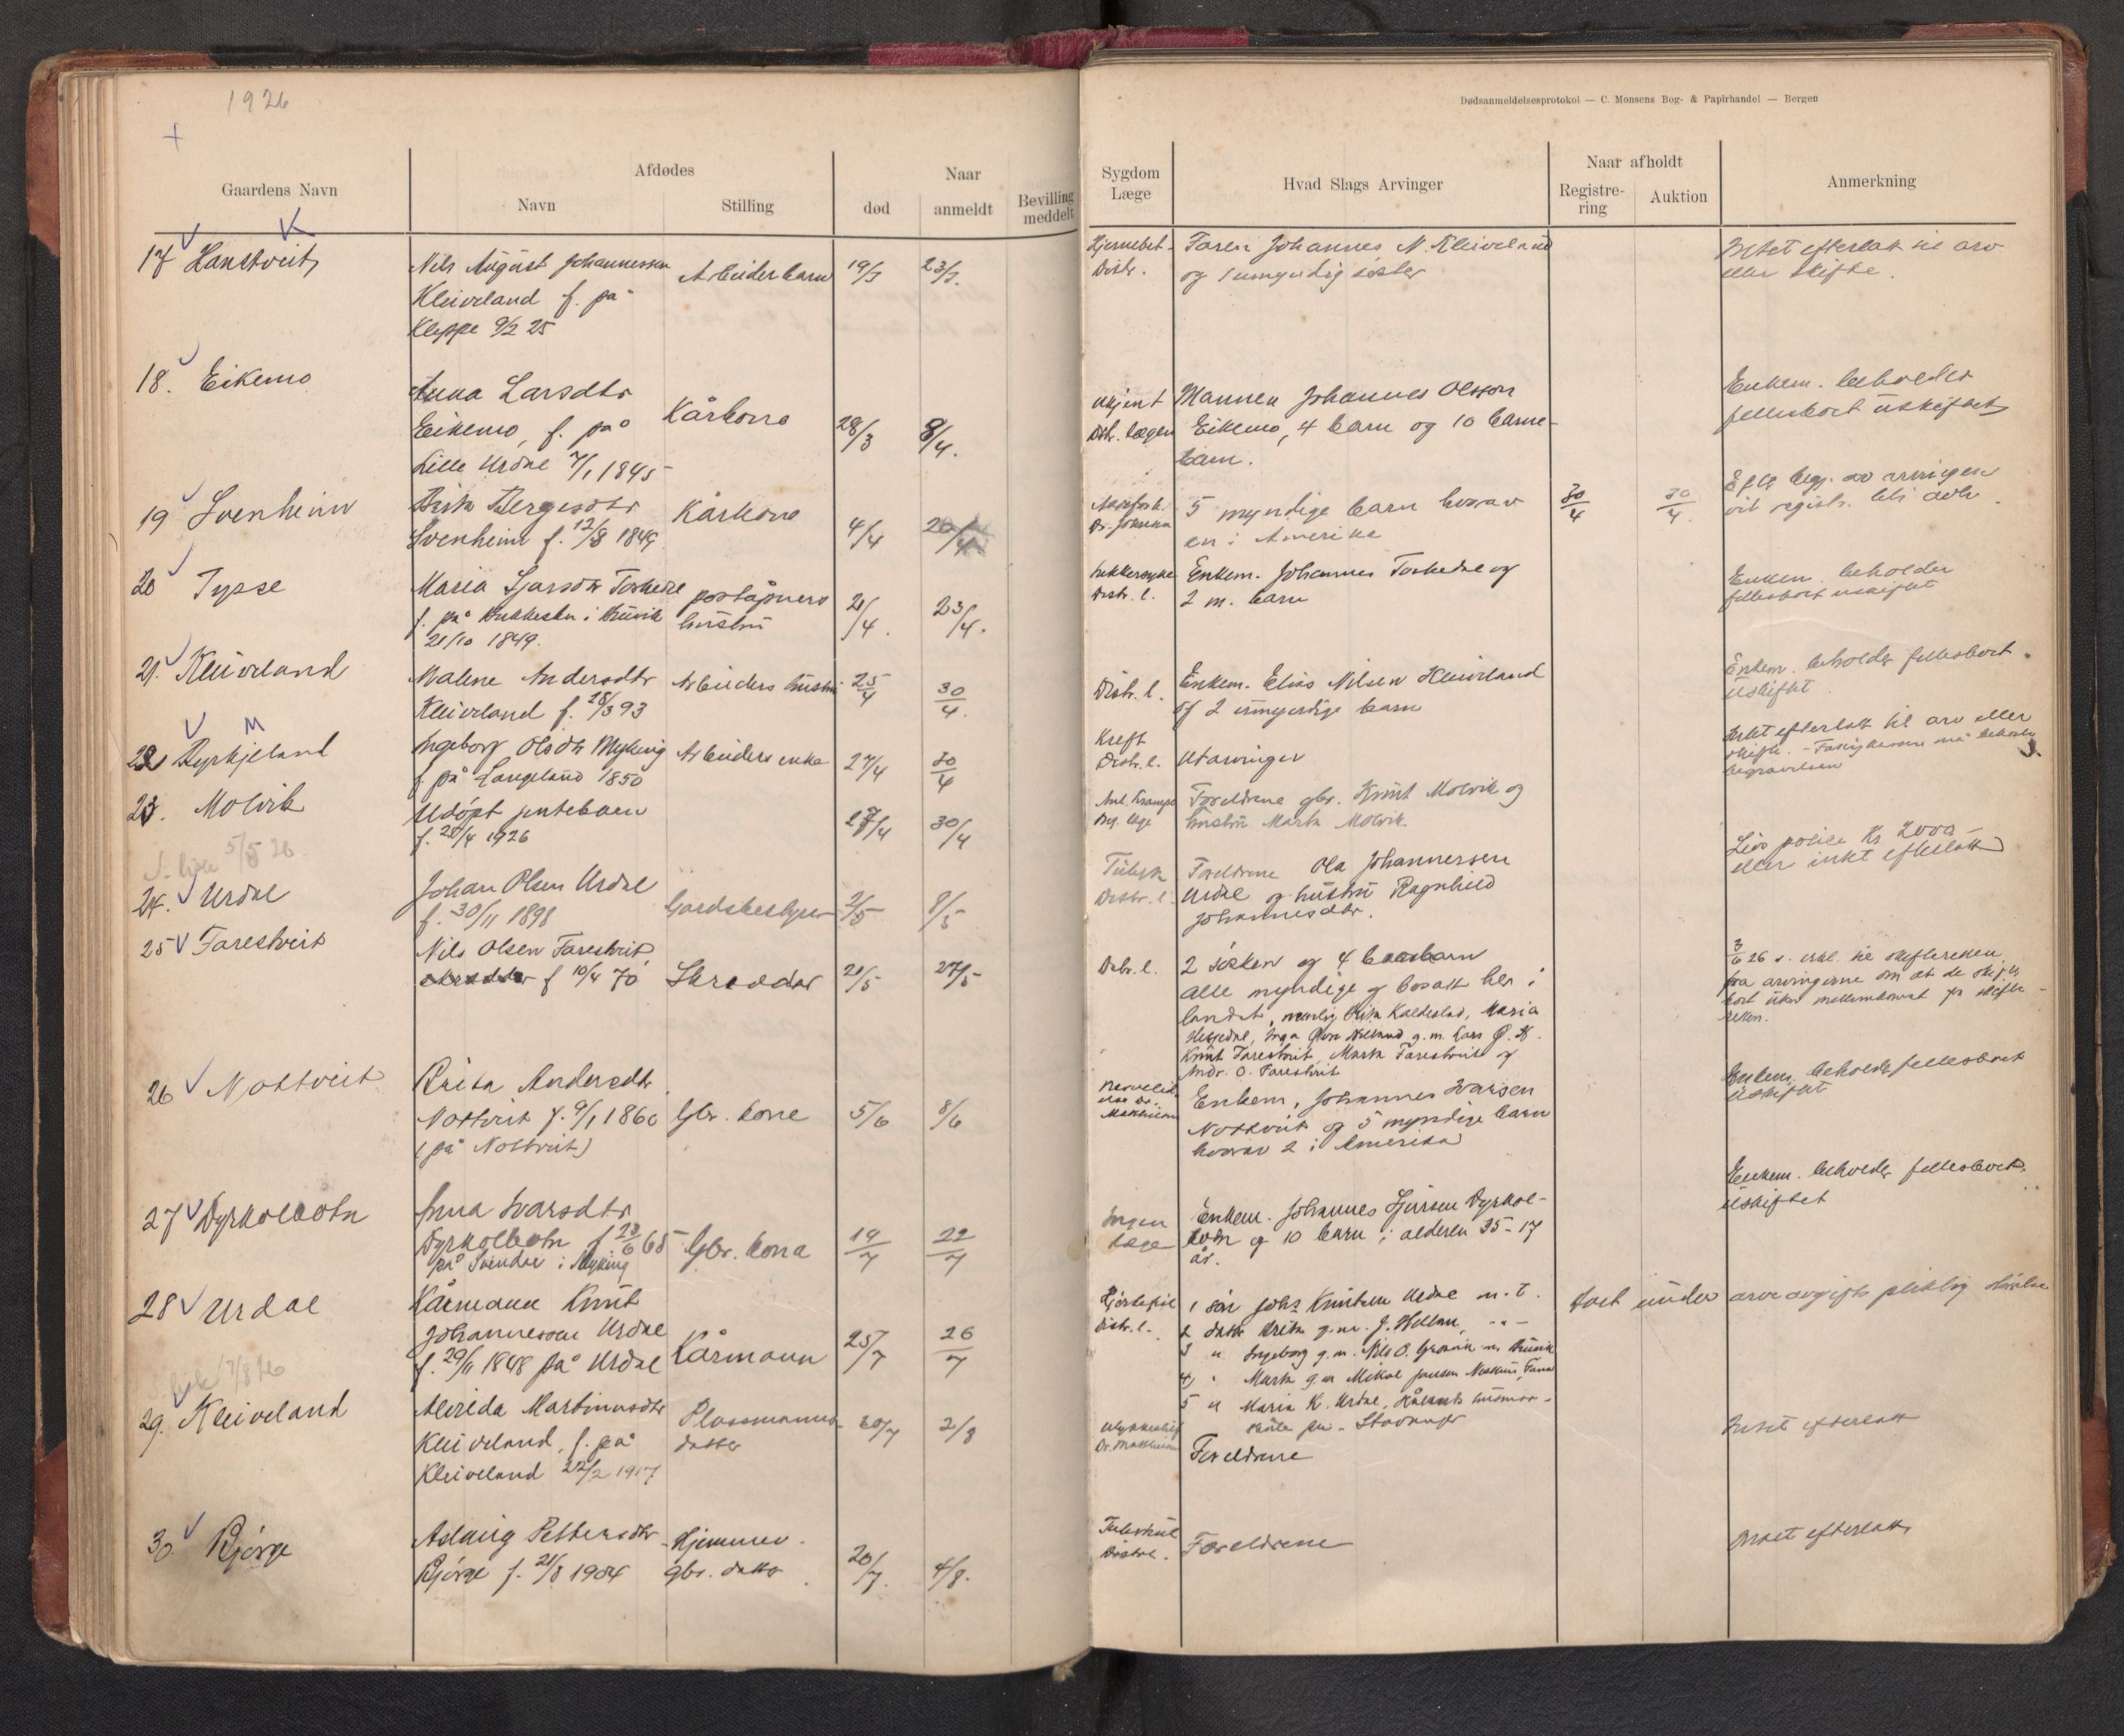 1926
Dødsanmeldelsesprotokol — C. Monsens Bog- & Papirhandel — Bergen
Gaardens Navn
Afdødes
Navn
Stilling
Naar
død
anmeldt
Bevilling meddelt
Sygdom
Læge
Hvad Slags Arvinger
Naar afholdt
Registre-
ring
Auktion
Anmerkning
17 Hanstveit
Nils August Johannessen
Kleiveland f. på
Kleppe 9/2 25
Arbeiderbarn 19/3 23/3.
Distr.
Faren Johannes N. Kleiveland
og 1 umyndig søster
Intet efterlatt til arv
eller skifte.
18. Eikemo
Anna Larsdtr
Eikemo, f. på
Lille Urdal 7/1 1845
Kårkona 28/3 8/4.
Ukjent
Distr. lægen
Mannen Johannes Olsson
Eikemo, 4 barn og 10 barne-
barn.
Enkem. beholder
fellesboet uskiftet
19 Svenheim
Brita Bergesdtr
Svenheim f. 12/8 1849
Kårkona 4/4 20/4
5 myndige barn hvorav
en i Amerika
30/4 30/4.
Efter begj. av arvingen
vil registr. bli avh.
20 Tysse
Maria Larsdtr
f. på i Bruvik
21/10 1849.
poståpners
hustru
2/4. 23/4.
Sukkersyke
Distr. l.
Enkem. Johannes og
2 m. barn
Enkem. beholder
fellesboet uskiftet
21. Kleiveland
Malene Andersdtr
Kleiveland f. 28/3 93
Arbeiders hustru 25/4 30/4.
Distr. l.
Enkem. Elias Nilsen Kleiveland
og 2 umyndige barn
Enkem. beholder fellesboet
uskiftet.
22 Dyrkjeland
Ingeborg Olsdtr Myking
f på Langeland 1850
Arbeiders enke 27/4 30/4
Kreft
Distr. l.
Utarvinger
Intet efterlatt til arv eller
skifte. - må bekoste
begravelsen
23. Molvik
Udøpt jentebarn
f. 25/4 1926
27/4 30/4
Foreldrene gbr. Knut Molvik og
hustru Marta Molvik.
5/5 26.
24. Urdal
Johan Olsen Urdal
f. 30/11 1898
Gardsbestyrer 2/5 8/5
Tuberk
Distr. l.
Foreldrene Ola Johannessen
Urdal og hustru Ragnhild
Johannesdtr.
Livspolise Kr 2000 -
eller intet efterlatt
25 Farestveit
Nils Olsen Farestveit,
f 10/4 70
Skredder 21/5 27/5
Distr. l.
2 søsken og 4
alle myndige og bosatt her i
landet, nemlig Brita Kaldestad, Maria
Hesjedal, Inga g.m. Lars O. H.
Knut Farestveit, Marta Farestveit og
Andr. O. Farestveit
3/6 26 s. erkl. til skifteretten
fra arvingerne om at de skifter
boet uten mellemkomst fr skifte-
retten.
26 Nottveit
Brita Andersdtr
Nottveit f. 9/1 1860
(på Nottveit)
Gbr. kone 5/6 8/6
Enkem. Johannes Ivarsen
Nottveit og 5 myndige barn
hvorav 2 i Amerika
Enkem. beholder fellesboet
uskiftet
27 Dyrkolbotn
Anna Ivarsdtr
Dyrkolbotn f 23/6 65
på i Myking
Gbr. kona 19/7 22/7
Ingen
læge
Enkem. Johannes Dyrkol-
botn og 10 barn i alderen 35-17
år.
Enkem. beholder fellesboet.
uskiftet
28 Urdal
Kårmann Knut
Johannessen Urdal
f. 29/11 1848 på Urdal
Kårmann 25/7 26/7
Hjertefeil
Distr. l.
1 søn Johs Knutsen Urdal m. t.
2 dattr Brita g.m. J. Hellan, - " -
3 " Ingeborg g.m. Nils O. Bruvik
4) " Marta g.m. Mikal Jensen Fana
5 " Maria K. Urdal, husmor-
skole pr. Stavanger
Boet under arveavgiftspliktig
29. Kleiveland
Alvilda Martinusdtr
Kleiveland, f. på
Kleiveland 22/2 1917
Plassmanns
datter
30/7 2/8
Foreldrene
Intet efterlatt
30 Bjørge
Aslaug Pettersdtr
Bjørge f. 21/8 1904
Hjemmev.
gbr. datter
20/7. 4/8.
Tuberkul
Distr. l.
Foreldrene
Intet efterlatt